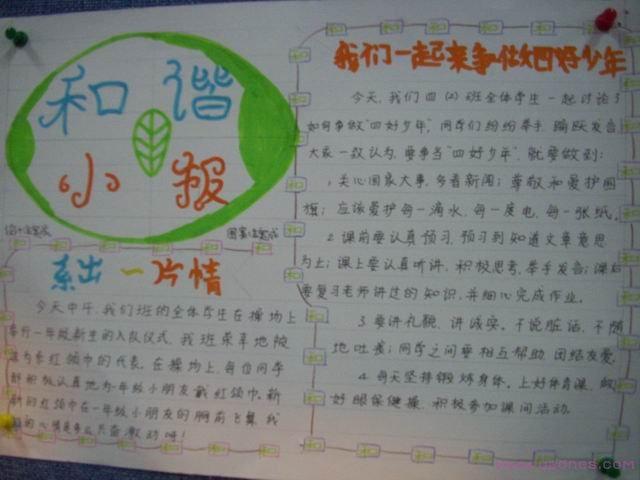 和谐
小报
系出一片情
今天中午,我们班的全体学生在操场上
举行一年级新生的入队仪式,我班荣幸地被
选为系红领巾的代表。在操场上,每位同学
都积极认真地为一年级小朋友戴红领巾。新
新的红领巾在一年级小朋友的胸前飞舞,我
的心情是多么兴奋激动呀!
我们一起来争做四好少年
今天,我们四(2)班全体学生一起讨论了
如何争做“四好少年”,同学们纷纷举手,踊跃发言,
大家一致认为,要争当“四好少年”就要做到:
1.关心国家大事,多看新闻;尊敬和爱护国
旗;应该爱护每一滴水,每一度电,每一张纸。
2.课前要认真预习,预习到知道文章意思
为止;课上要认真听讲,积极思考,举手发言;课后
要复习老师讲过的知识,并细心完成作业。
3.要讲礼貌,讲诚实。不说脏话,不随
地吐痰;同学之间要相互帮助,团结友爱。
4.每天坚持锻炼身体。上好体育课,做
好眼保健操,积极参加课间活动。